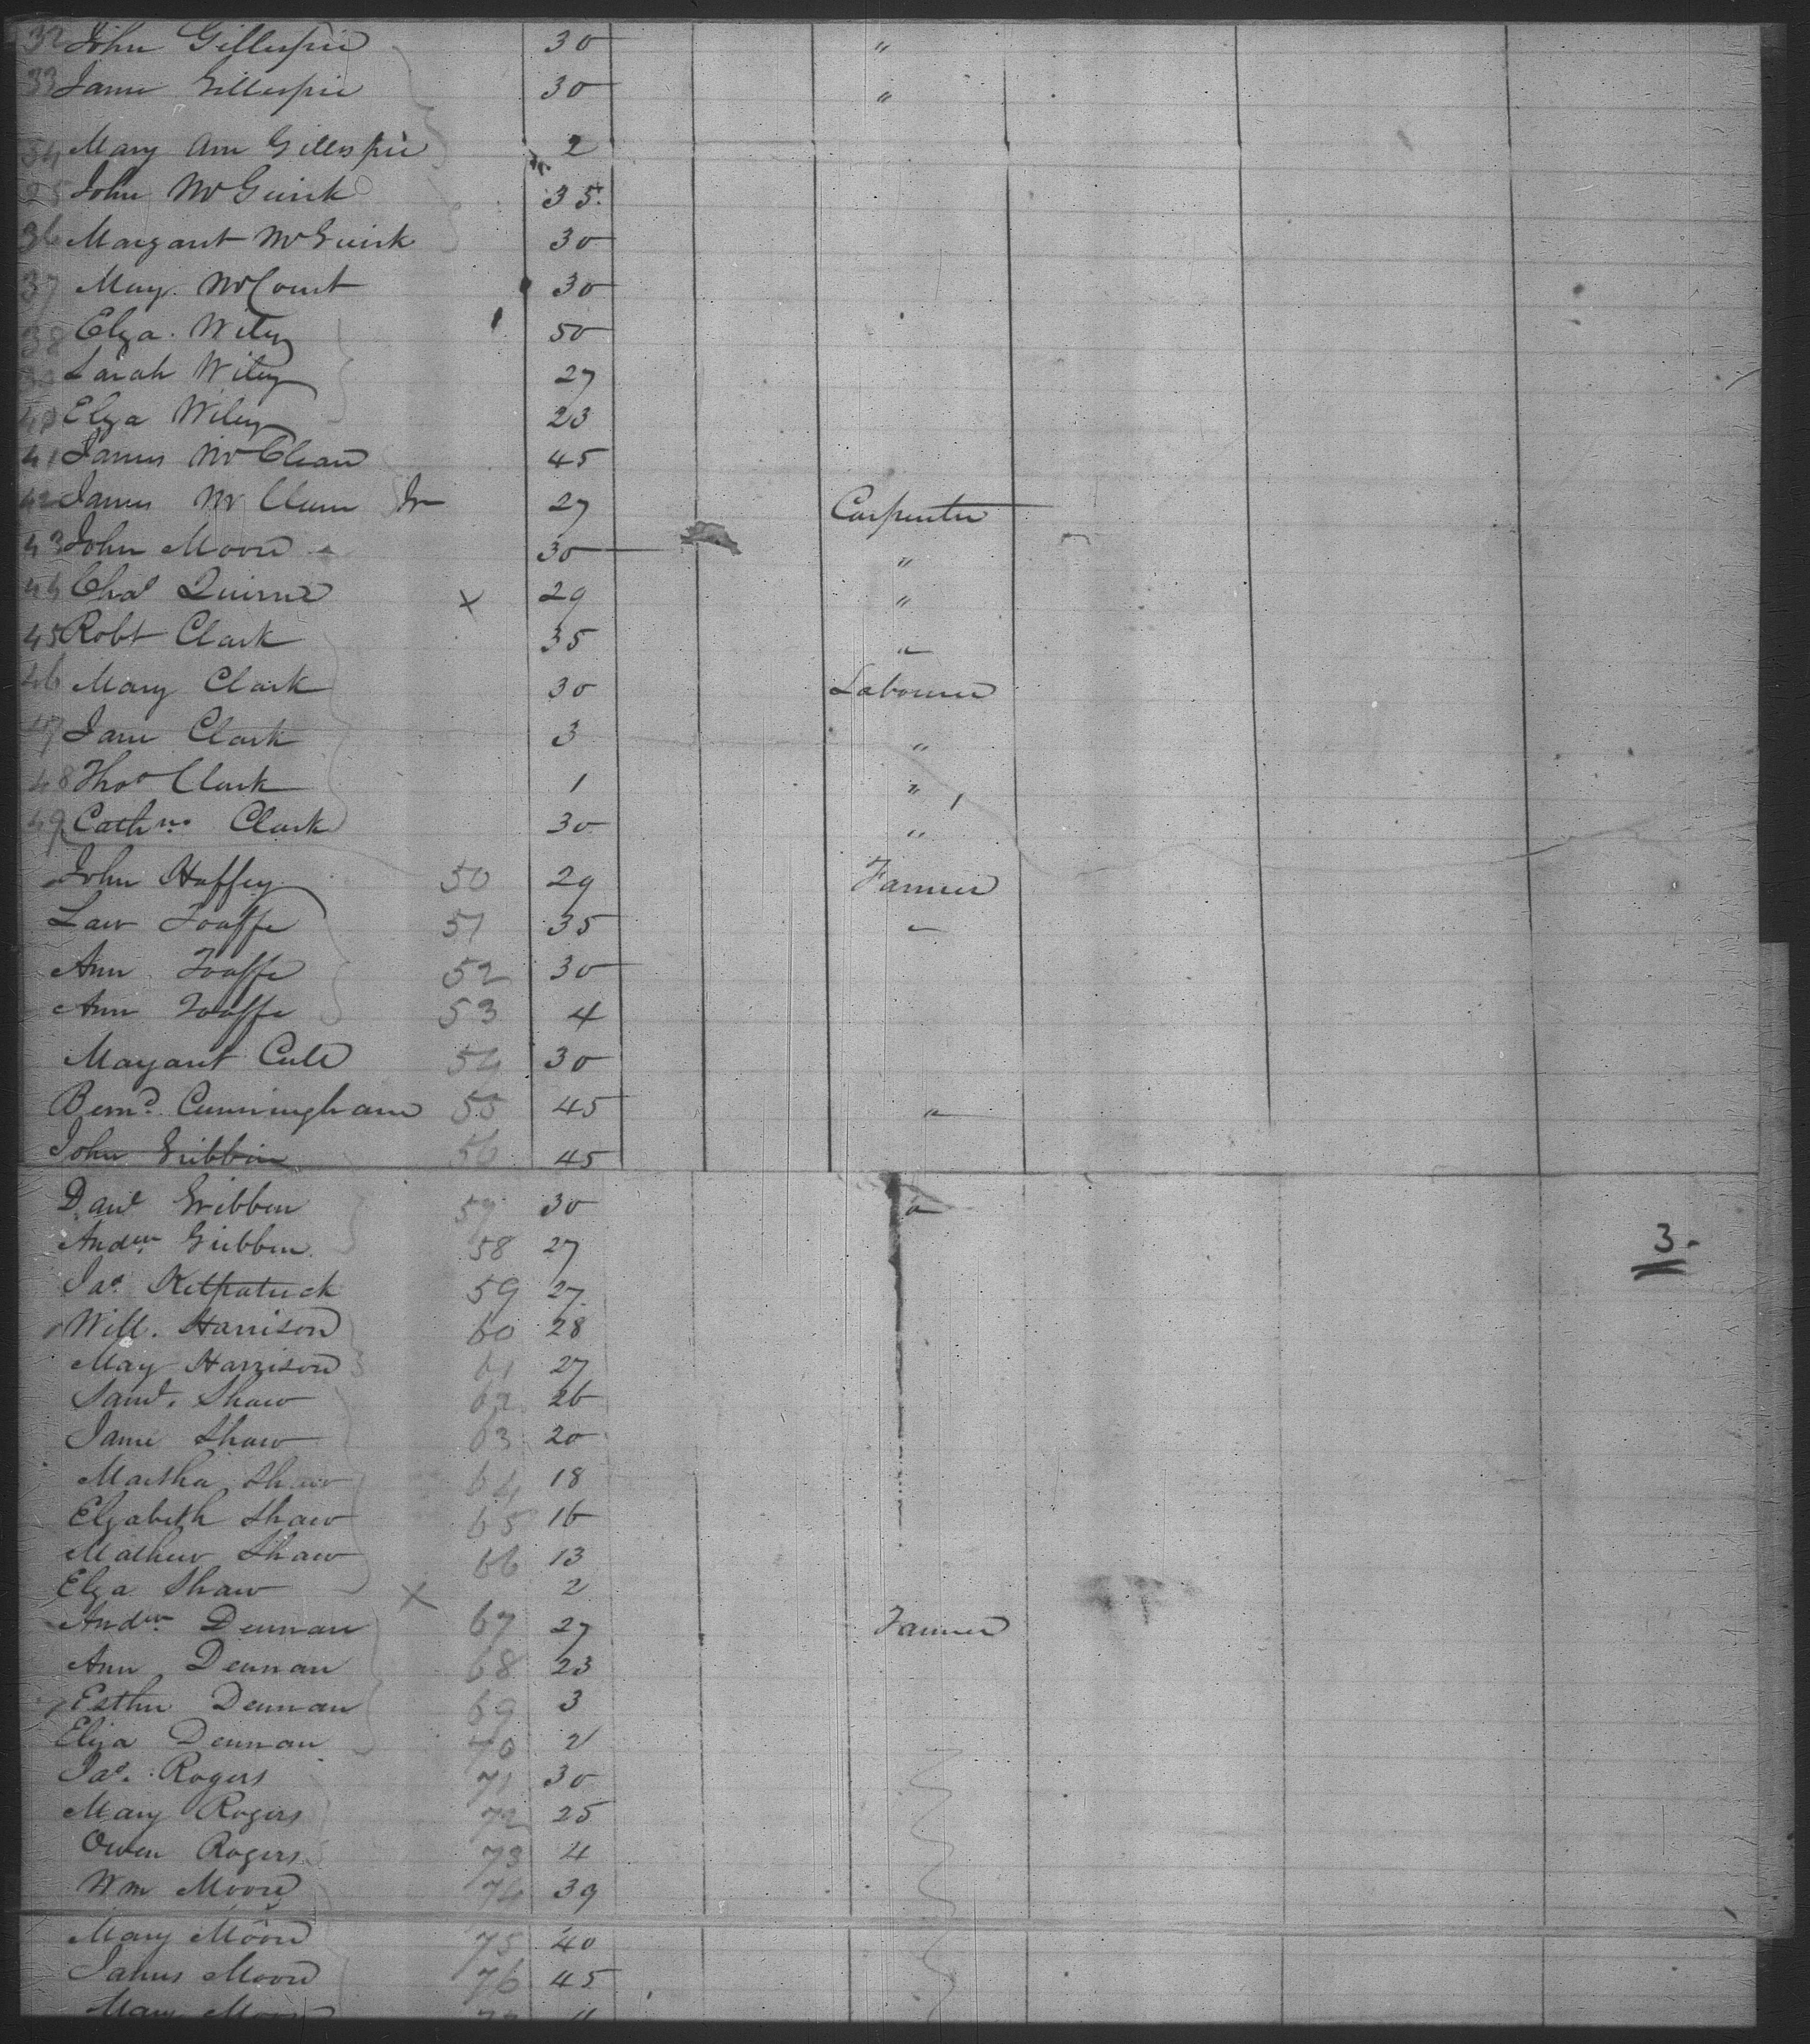 32 John Gillespie 30 "
33 Jane Gillespie 30 "
34 Mary Ann Gillespie 2
35 John McGuirk 35
36 Margaret McGuirk 30
37 Mary McCourt 30
38 Elza. Wiley 50
39 Sarah Wiley 27
40 Elza Wiley 23
41 James McClean 45
42 James McClean Jr 27 Carpenter
43 John Moore 30 "
44 Chas Quinn 29 "
45 Robt Clark 35 "
46 Mary Clark 30 Labourer
47 Jane Clark 3 "
48 Thos Clark 1 "
49 Cathne Clark 30 "
John Haffey 50 29 Farmer
Law Taaffe 51 35 "
Ann Taaffe 52 30
Ann Taaffe 53 4
Margaret 54 30
Bernd. Cunningham 55 45 "
John Gribbin 56 45
Danl Gribben 57 30 "
Andw. Gribben 58 27
Jas. Kilpatrick 59 27
Will. Harrison 60 28
Mary Harrison 61 27
Saml. Shaw 62 26
Jane Shaw 63 20
Martha Shaw 64 18
Elzabeth Shaw 65 16
Mathew Shaw 66 13
Elza Shaw X 2
Andw. Dennan 67 27 Farmer
Ann Dennan 68 23
Esther Dennan 69 3
Eliza Dennan 70 2
Jas. Rogers 71 30
Mary Rogers 72 25
Owen Rogers 73 4
Wm Moore 74 39
Mary Moore 75 40
James Moore 76 45
Mary
3.